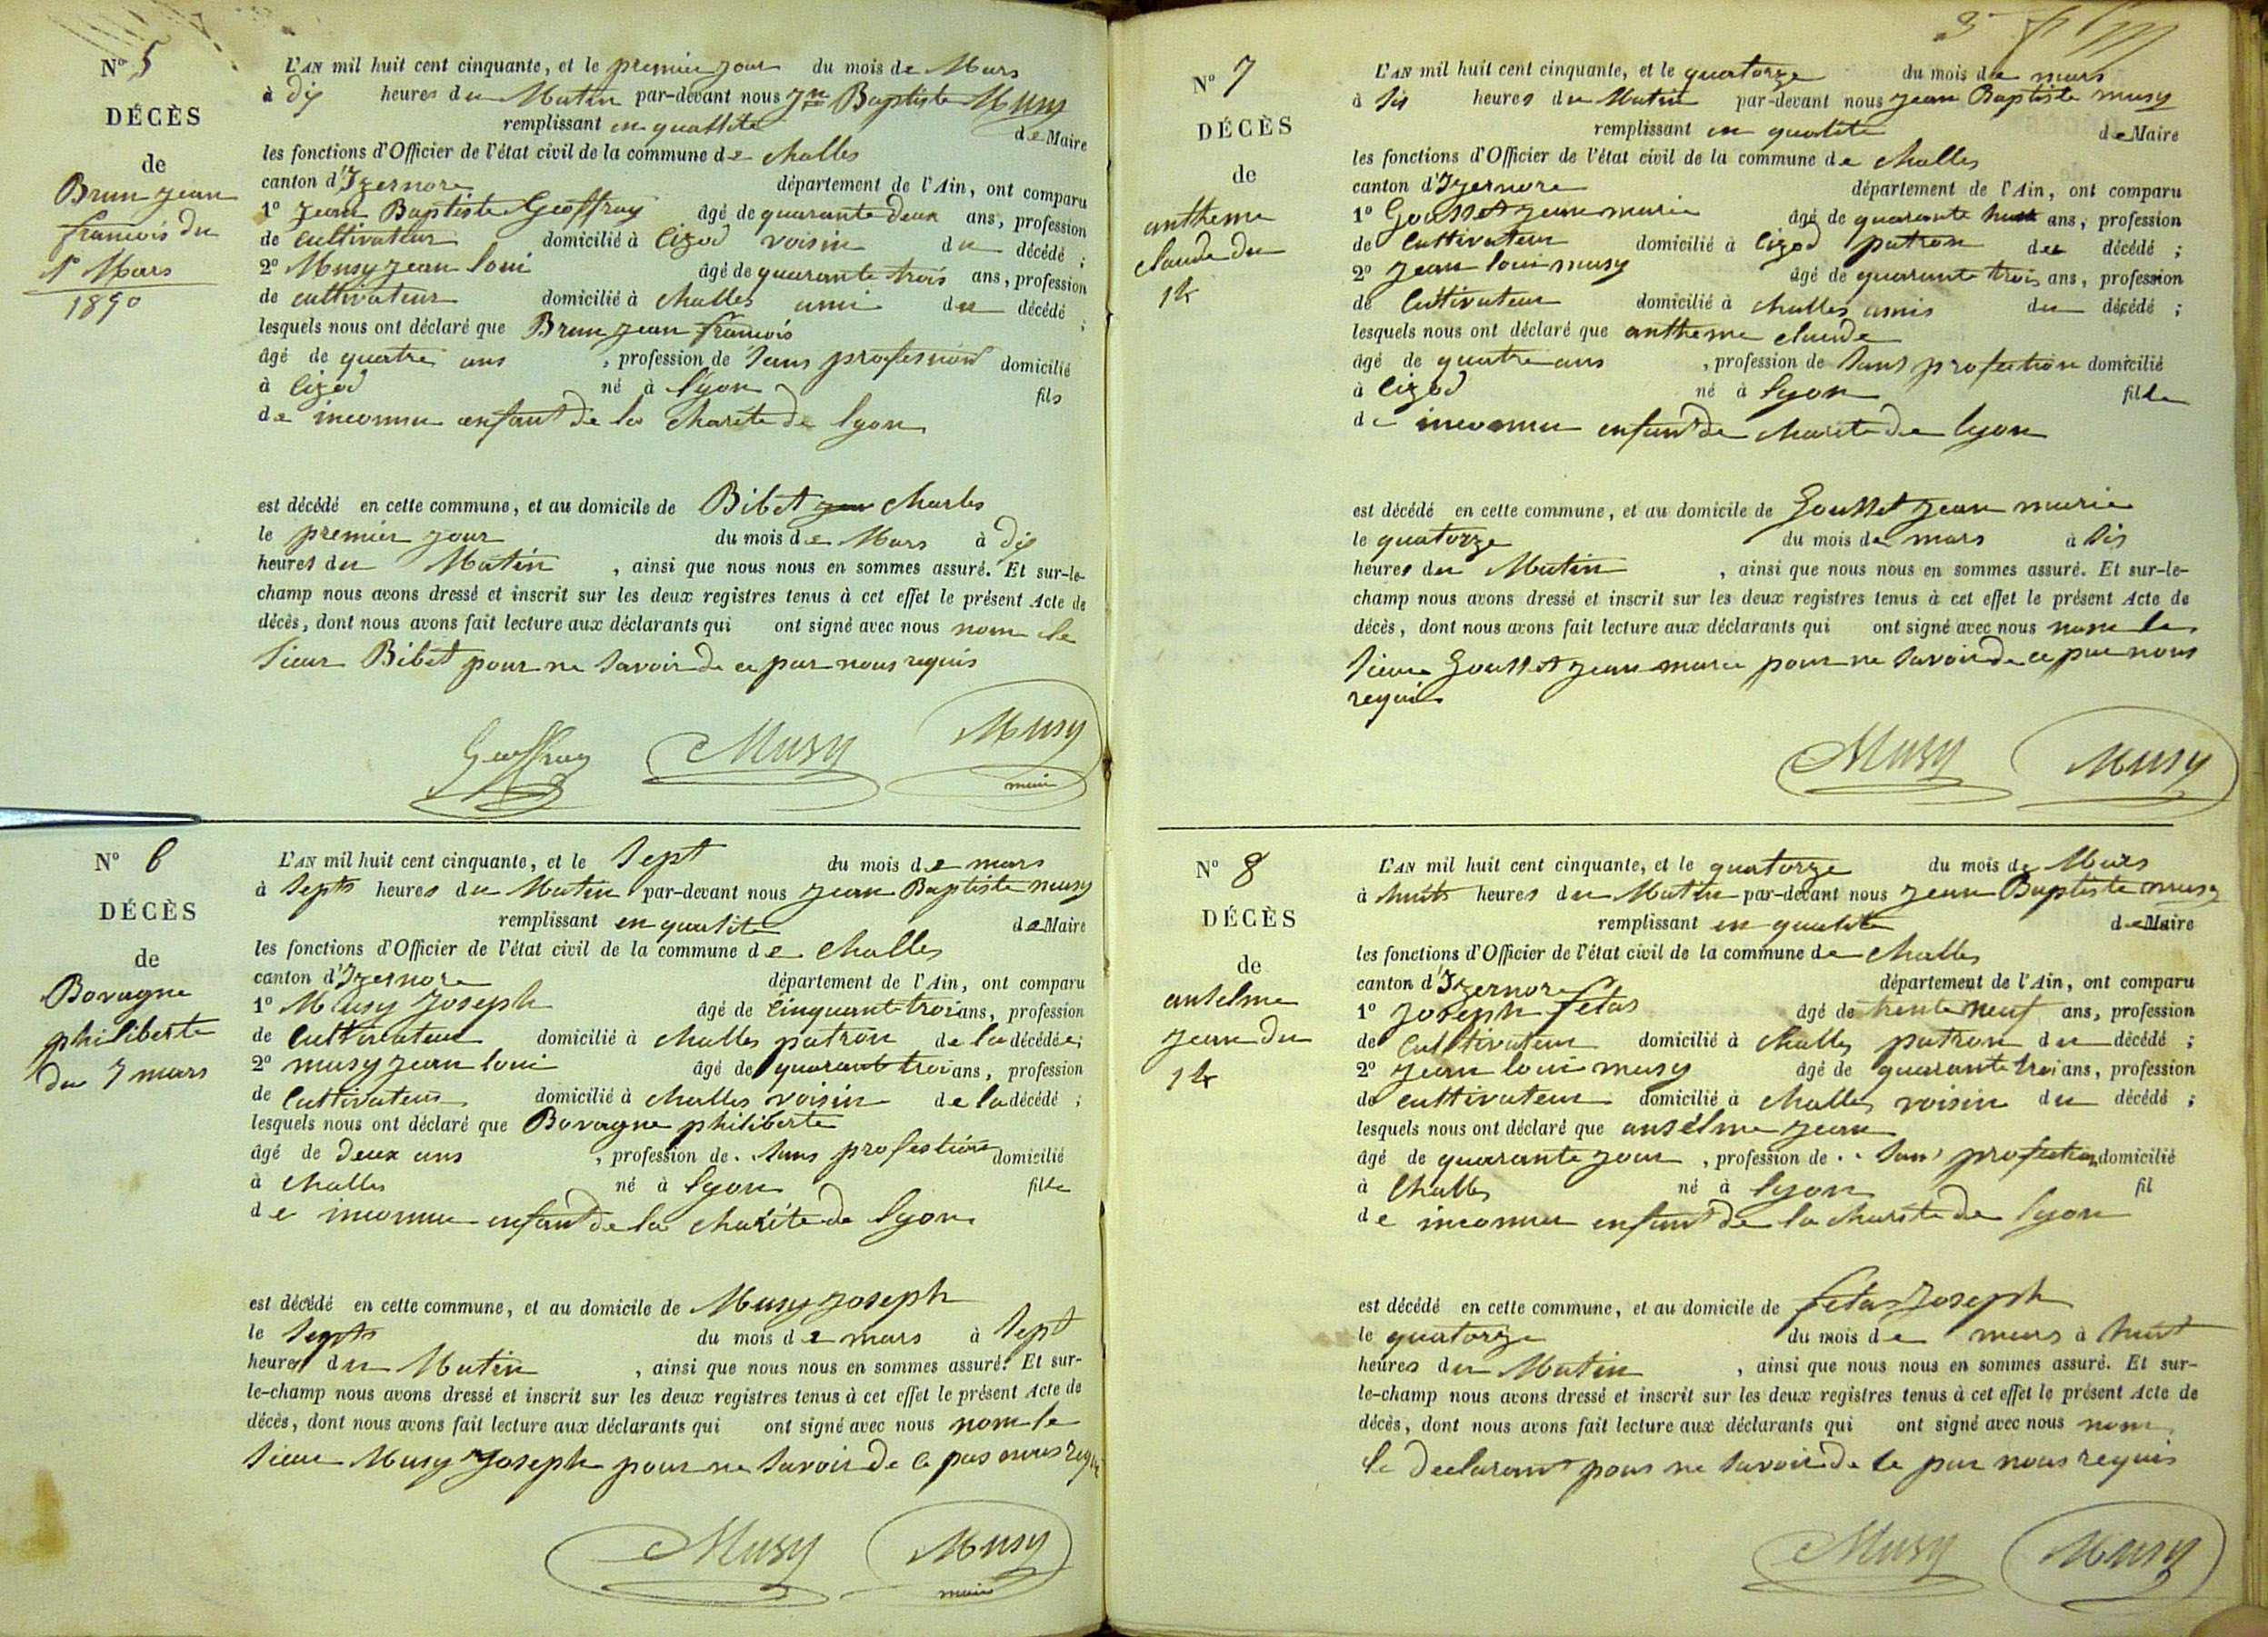 Nº 5
DÉCÈS
de
Brun jean
francois du
1r Mars
1850
L'AN mil huit cent cinquante, et le premier jour du mois de Mars
à dix heures du Matin par-devant nous Jn Baptiste Musy
remplissant en quallité de Maire
les fonctions d'Officier de l'état civil de la commune de challes
canton d'Izernore département de l'Ain, ont comparu
1º jean Baptiste Geoffray âgé de quarante deux ans, profession
de cultivateur domicilié à Cizod voisin du décédé ;
2º Musy jean loui âgé de quarante trois ans, profession
de cultivateur domicilié à challes ami du décédé ;
lesquels nous ont déclaré que Brun jean francois
âgé de quatre ans , profession de sans profession domicilié
à Cizod né à lyon fils
de inconnu enfant de la charité de lyon
est décédé en cette commune, et au domicile de Bibet charles
le premier jour du mois de Mars à dix
heures du Matin , ainsi que nous nous en sommes assuré. Et sur-le-
champ nous avons dressé et inscrit sur les deux registres tenus à cet effet le présent Acte de
décès, dont nous avons fait lecture aux déclarants qui ont signé avec nous nom le
sieur Bibet pour ne savoir de ce par nous requis
Geoffray Musy Musy
maire
Nº 6
DÉCÈS
de
Bovagne
philiberte
du 7 mars
L'AN mil huit cent cinquante, et le sept du mois de mars
à septs heures du Matin par-devant nous jean Baptiste musy
remplissant en qualité de Maire
les fonctions d'Officier de l'état civil de la commune de challes
canton d'Izernore département de l'Ain, ont comparu
1º Musy joseph âgé de Cinquante trois ans, profession
de Cultivateur domicilié à challes patron de la décédée;
2º musy jean loui âgé de quarante trois ans, profession
de Cultivateur domicilié à challes voisin de la décédé ;
lesquels nous ont déclaré que Bovagne philiberte
âgé de deux ans , profession de . sans profession domicilié
à challes né à lyon fille
de inconnu enfant de la charité de lyon
est décédé en cette commune, et au domicile de Musy joseph
le septs du mois de mars à sept
heures du Matin , ainsi que nous nous en sommes assuré. Et sur-
le-champ nous avons dressé et inscrit sur les deux registres tenus à cet effet le présent Acte de
décès, dont nous avons fait lecture aux déclarants qui ont signé avec nous nom le
sieur Musy joseph pour ne savoir de ce par nous
Musy Musy
maire
3
Nº 7
DÉCÈS
de
antheme
claude du
14
L'AN mil huit cent cinquante, et le quatorze du mois de mars
à sis heures du Matin par-devant nous jean Baptiste musy
remplissant en qualité de Maire
les fonctions d'Officier de l'état civil de la commune de challes
canton d'Izernore département de l'Ain, ont comparu
1º Gousset jean marie âgé de quarante huit ans, profession
de Cultivateur domicilié à Cizod patron du décédé ;
2º jean loui musy âgé de quarante trois ans, profession
de Cultivateur domicilié à challes amis du décédé ;
lesquels nous ont déclaré que antheme claude
âgé de quatre ans , profession de sans profession domicilié
à Cizod né à lyon fil de
de inconnu enfant de charité de lyon
est décédé en cette commune, et au domicile de Gousset jean marie
le quatorze du mois de mars à sis
heures du Matin , ainsi que nous nous en sommes assuré. Et sur-le-
champ nous avons dressé et inscrit sur les deux registres tenus à cet effet le présent Acte de
décès, dont nous avons fait lecture aux déclarants qui ont signé avec nous nom le
sieur Gousset jean marie pour ne savoir de ce par nous
requis
Musy Musy
Nº 8
DÉCÈS
de
anselme
jean du
14
L'AN mil huit cent cinquante, et le quatorze du mois de Mars
à huits heures du Matin par-devant nous jean Baptiste musy
remplissant en qualité de Maire
les fonctions d'Officier de l'état civil de la commune de challes
canton d'Izernore département de l'Ain, ont comparu
1º joseph fetas âgé de trente neuf ans, profession
de Cultivateur domicilié à challes patron du décédé ;
2º jean loui musy âgé de quarante troi ans, profession
de cultivateur domicilié à challes voisin du décédé ;
lesquels nous ont déclaré que ansélme jean
âgé de quarante jour , profession de . . sans profession domicilié
à challes né à lyon fil
de inconnu enfant de la charité de lyon
est décédé en cette commune, et au domicile de fetas joseph
le quatorze du mois de mars à huit
heures du Matin , ainsi que nous nous en sommes assuré. Et sur-
le-champ nous avons dressé et inscrit sur les deux registres tenus à cet effet le présent Acte de
décès, dont nous avons fait lecture aux déclarants qui ont signé avec nous nom
le declarant pour ne savoir de ce par nous requis
Musy Musy